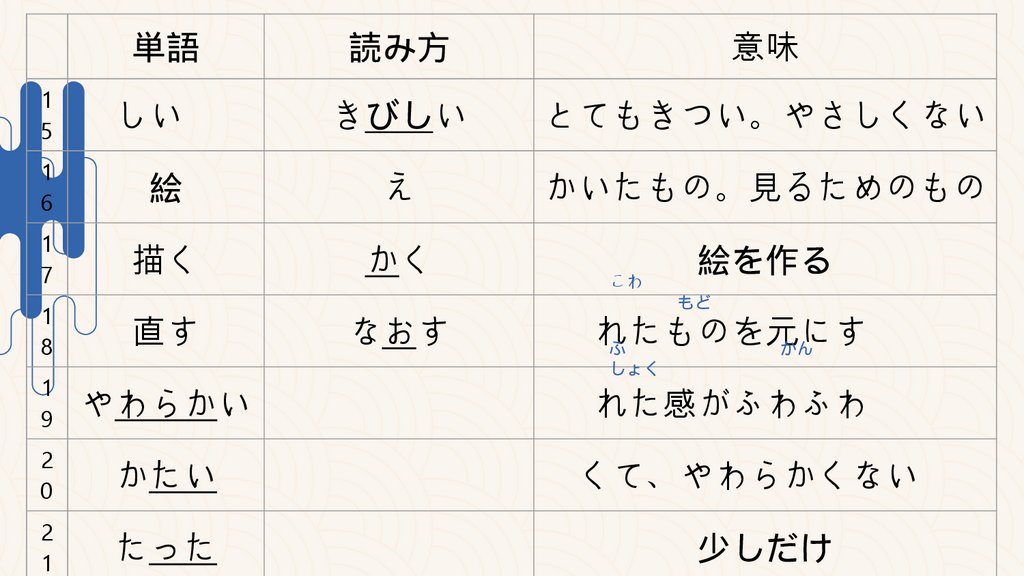 単語 読み方 意味
15 しい きびしい とてもきつい。やさしくない
16 絵 え かいたもの。見るためのもの
17 描く かく 絵を作る
こわ
もど
18 直す なおす れたものを元にす
ふ がん
しょく
19 やわらかい れた感がふわふわ
20 かたい くて、やわらかくない
21 たった 少しだけ